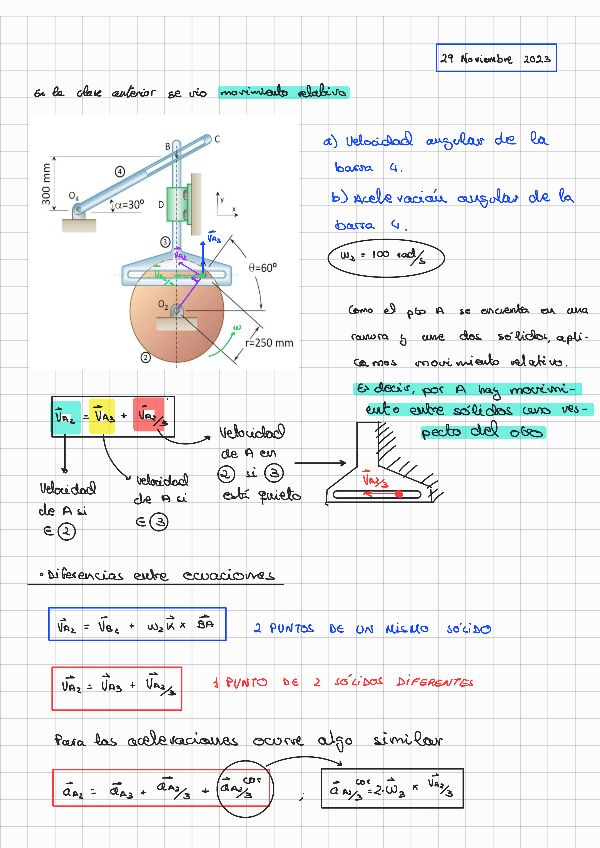 29 Noviembre 2023
En la clase anterior se vio movimiento relativo
a) Velocidad angular de la
barra 4.
b) Aceleración angular de la
barra 4.
ω₂ = 100 rad/s
300 mm
B
C
④
O₄
α=30°
D
y
x
③
V⃗A₃
V⃗A₂
θ=60°
O₂
ω
r=250 mm
②
Como el pto A se encuentra en una
ranura y une dos sólidos, apli-
camos movimiento relativo.
Es decir, por A hay movimi-
ento entre sólidos uno res-
pecto del otro
V⃗A₂ = V⃗A₃ + V⃗A₂/₃
Velocidad
de A si
∈ ②
Velocidad
de A si
∈ ③
Velocidad
de A en
② si ③
está quieto
V⃗A₂/₃
• Diferencias entre ecuaciones
V⃗A₂ = V⃗B₂ + ω₂ K⃗ × B⃗A
2 PUNTOS DE UN MISMO SÓLIDO
V⃗A₂ = V⃗A₃ + V⃗A₂/₃
1 PUNTO DE 2 SÓLIDOS DIFERENTES
Para las aceleraciones ocurre algo similar
a⃗A₂ = a⃗A₃ + a⃗A₂/₃ + a⃗A₂/₃ᶜᵒʳ ; a⃗A₂/₃ᶜᵒʳ = 2·ω⃗₃ × V⃗A₂/₃